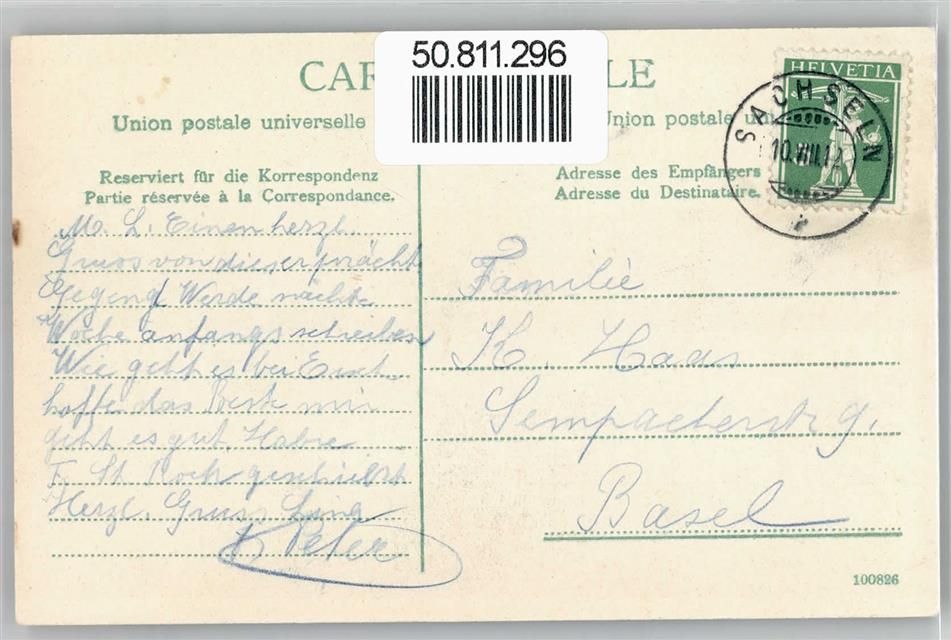 50.811.296
CAR LE
Union postale universelle
Union postale un
Reserviert für die Korrespondenz
Partie réservée à la Correspondance.
Adresse des Empfängers
Adresse du Destinataire.
HELVETIA
SACHSELN
10.VIII.12
M. L. Einen herzl.
Gruss von dieser prächt
Gegend Werde nächste
Woche anfangs schreiben
Wie geht es bei Euch
hoffe das Beste mir
geht es gut. Habe
F. St. Rock geschickt
Herzl. Gruss Lina
Peter
Familie
K. Haas
Sempacherstr 9.
Basel
100826